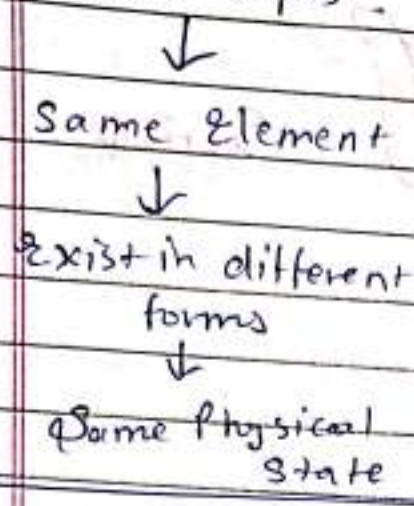 ↓
Same Element
↓
Exist in different
forms
↓
Same Physical
state